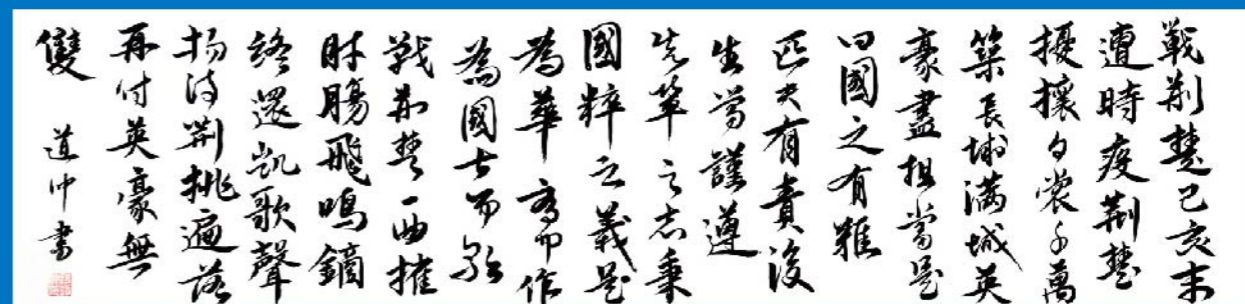 戰荊楚己亥末
遭時疫荊楚
擾攘白裳千萬
築長城滿城英
豪盡担當是
曰國之有難
匹夫有責後
生當謹遵
先輩之志秉
國粹之義是
為華作
為國士而歌
戰荊楚一曲摧
肝腸飛鳴鏑
終還凱歌聲
揚挑遍落
再付英豪無
雙
道冲書